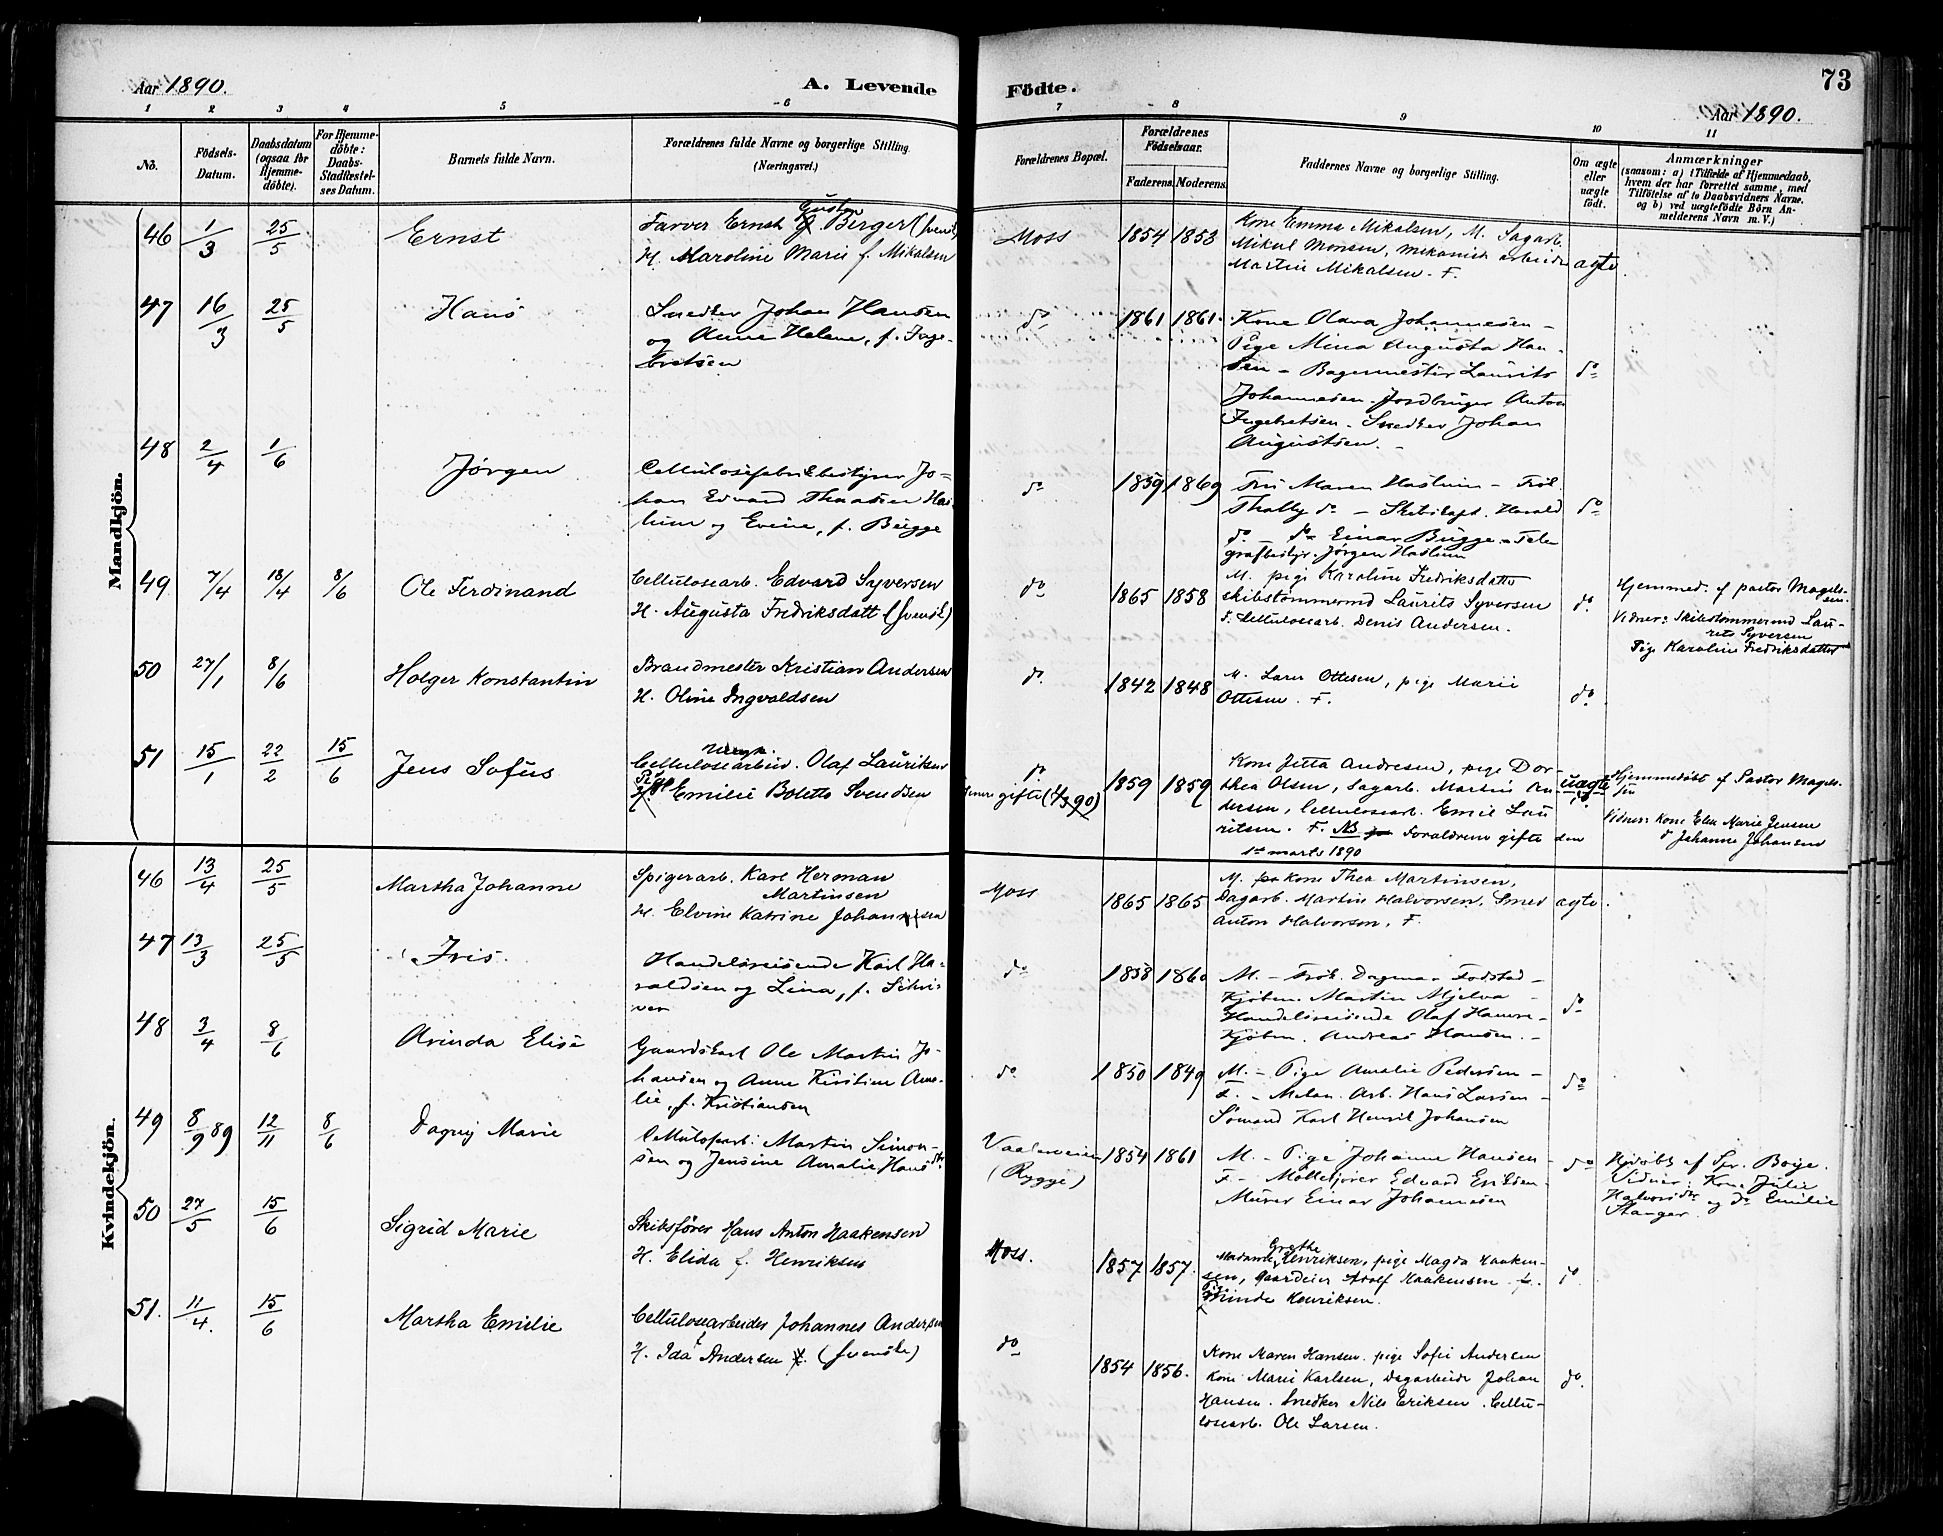 Aar 1890.
A. Levende
Födte.
73
Aar 1890.
1 2 3 4 5 6 7 8 9 10 11
No.
Födsels-
Datum.
Daabsdatum
(ogsaa for
Hjemme-
döbte).
For Hjemme-
döbte:
Daabs-
Stadfæstel-
ses Datum.
Barnets fulde Navn.
Forældrenes fulde Navne og borgerlige Stilling
(Næringsvei.)
Forældrenes Bopæl.
Forældrenes
Födselsaar.
Faderens. Moderens.
Faddernes Navne og borgerlige Stilling.
Om ægte
eller
uægte
födt.
Anmærkninger
(saasom: a) i Tilfælde af Hjemmedaab,
hvem der har forrettet samme, med
Tilföielse af to Daabsvidners Navne.
og b) ved uægtefödte Börn An-
melderens Navn m. V.)
Mandkjön.
46 1/3 25/5 Ernst
Farver Ernst Gustav Berger (svensk)
H. Maroline Marie f. Mikalsen
Moss 1854 1853
Kone Emma Mikalsen, M. Sagarb.
Mikal Monsen, mekanisk arbeider
Martin Mikalsen. F.
ægte.
47 16/3 25/5 Hans
Snedker Johan Hansen
og Anne Helene, f. Inge-
bretsen
do 1861 1861.
Kone Olava Johannesen –
Pige Mina Augusta Han-
sen – Bagermester Laurits
Johannesen. Jordbruger Anton
Ingebretsen – Snedker Johan
Augustsen. –
do
48 2/4 1/6 Jørgen
Cellulosefabrikbestyrer Jo-
han Edvard Thaasen Has-
lum og Evine, f. Bugge
do 1859 1869
Fru Maren Haslum – Frøk.
Thally do – Skibskapt. Harald
do – do Einar Bugge – Tele-
grafbestyr. Jørgen Haslum
do
49 7/4 18/4 8/6 Ole Ferdinand
Cellulosearb. Edvard Syversen
H. Augusta Fredriksdatt (svensk)
do 1865 1858
M. pige Karoline Fredriksdatter
skibstømmermd Laurits Syversen
F. Cellulosearb. Denis Andersen.
do.
Hjemmed. af pastor Magels-
sen.
Vidner: Skibstømmermd Lau-
rits Syversen
Pige Karoline Fredriksdatter
50 27/1 8/6 Holger Konstantin
Brandmester Kristian Andersen
H. Oline Ingvaldsen
do. 1842 1848
M. Lars Ottesen, pige Marie
Ottesen. F.
do.
51 15/1 22/2 15/6 Jens Sofus
Ungk.
Cellulosearbeid. Olaf Lauritsen
Pige Emilie Bolette Svendsen
do
senere gifte (1/3 90) 1859 1859
Kone Jitta Andresen, pige Dor-
thea Olsen, Sagarb. Martin An-
dersen, Cellulosearb. Emil Lau-
ritsen. F. NB Forældrene gifte den
1ste marts 1890
uægte
Hjemmedøbt af Pastor Magels-
sen
Vidner: Kone Elen Marie Jensen
do Johanne Johansen
Kvindekjön.
46 13/4 25/5 Martha Johanne
Spigerarb. Karl Herman
Martinsen
H. Elvine Katrine Johannesen
Moss 1865 1865
M. kone Thea Martinsen,
Dagarb. Martin Halvorsen. Smed
Anton Halvorsen. F.
ægte.
47 13/3 25/5 Iris.
Handelsreisende Karl Ha-
raldsen og Lina, f. Schri-
ver
do 1858 1860
M. – Frøk. Dagmar Fodstad –
Kjøbm. Martin Mjelva –
Handelsreisende Olaf Hamre –
Kjøbm. Andreas Hansen. –
do
48 3/4 8/6 Arinda Elise
Gaardskarl Ole Martin Jo-
hansen og Anne Kirstine Ama-
lie, f. Kristiansen
do 1850 1849
M. – Pige Amalie Pedersen –
F. – Melan. Arb. Hans Larsen –
Sømand Karl Henrik Johansen
do
49 8/9 89 12/11 8/6 Dagny Marie
Cellulosearb: Martin Simon-
sen og Jensine Amalie Hansdtr.
Vaalerveien
(Rygge) 1854 1861
M. – Pige Johanne Hansen –
F. – Møllekjører Edvard Eriksen.
Murer Einar Johannesen
do
Hjdøbt af Spr. Boije.
Vidner: Kone Julie
Halvorsdtr og do Emilie
Stanger.
50 27/5 15/6 Sigrid Marie
Skibsfører Hans Anton Haakensen
H. Elida f. Henriksen
Moss. 1857 1857.
Madame Grethe Henriksen, pige Magda Haaken-
sen, Gaardeier Adolf Haakensen
Minda Henriksen.
do
51. 11/4. 15/6 Martha Emilie
Cellulosearbeider Johannes Andersen
H. Ida Andersen (svenske)
do 1854 1856.
Kone Maren Hansen. pige Sofie Andersen
Kone Marie Karlsen, Dagarbeider Johan
Hansen. Snedker Nils Eriksen. Cellu-
losearb. Ole Larsen.
do.